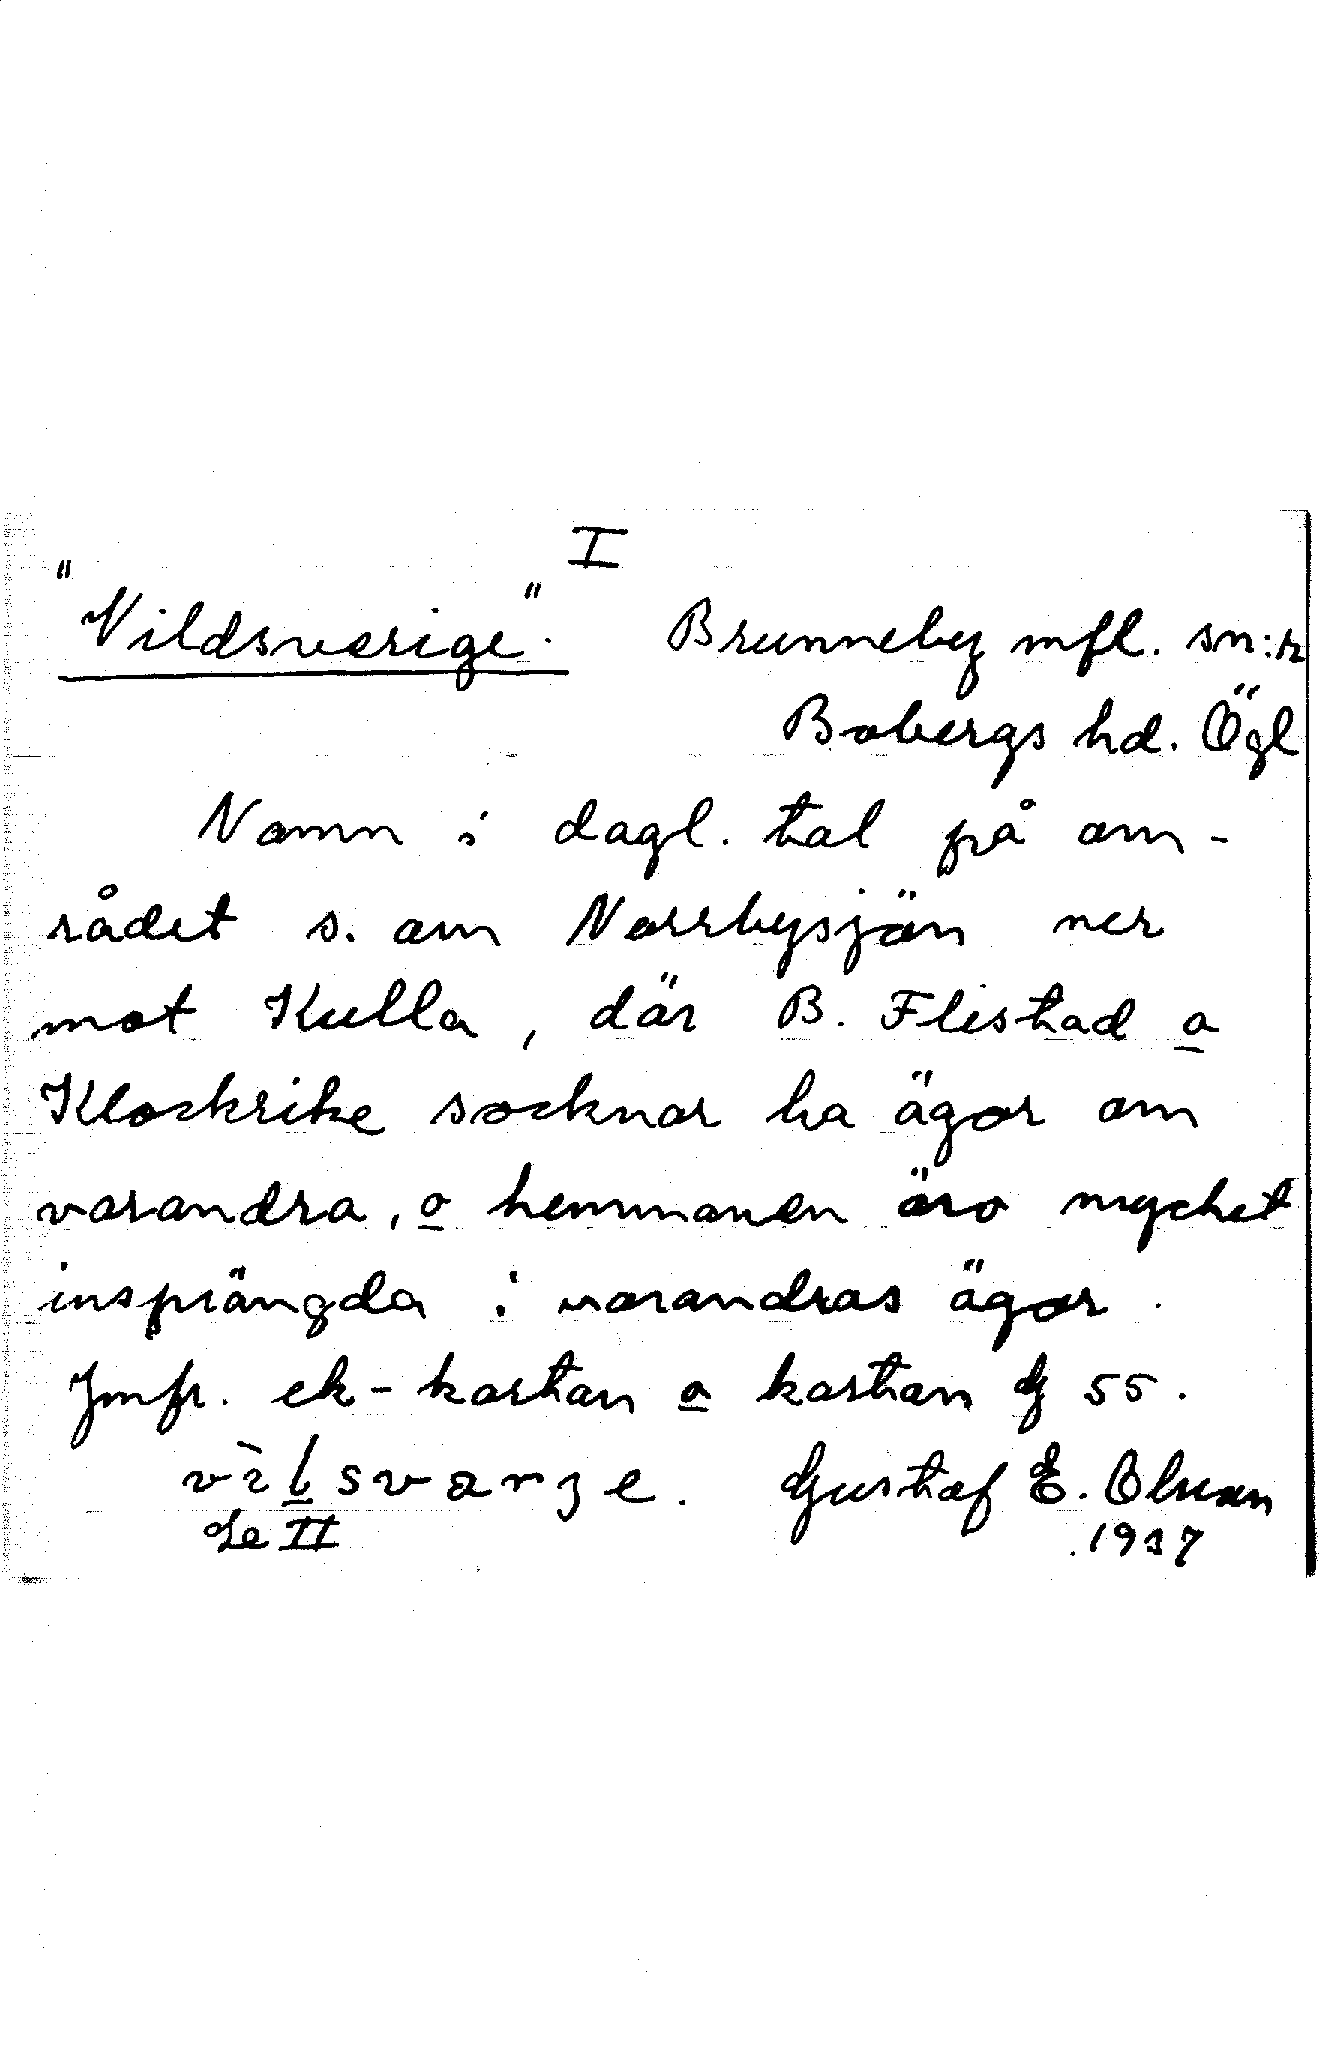 I
"Vildsverige". Brunneby mfl. sn:r
Bobergs hd. Ögl
Namn i dagl. tal på om-
rådet s. om Norrbysjön ner
mot Kulla, där B. Flistad o
Klockrike socknar ha ägor om
varandra, o hemmanen äro mycket
insprängda i varandras ägor.
Jmfr. ek-kartan o kartan G 55.
vìlsvarʒe. Gustaf E. Olsson
Se II 1937